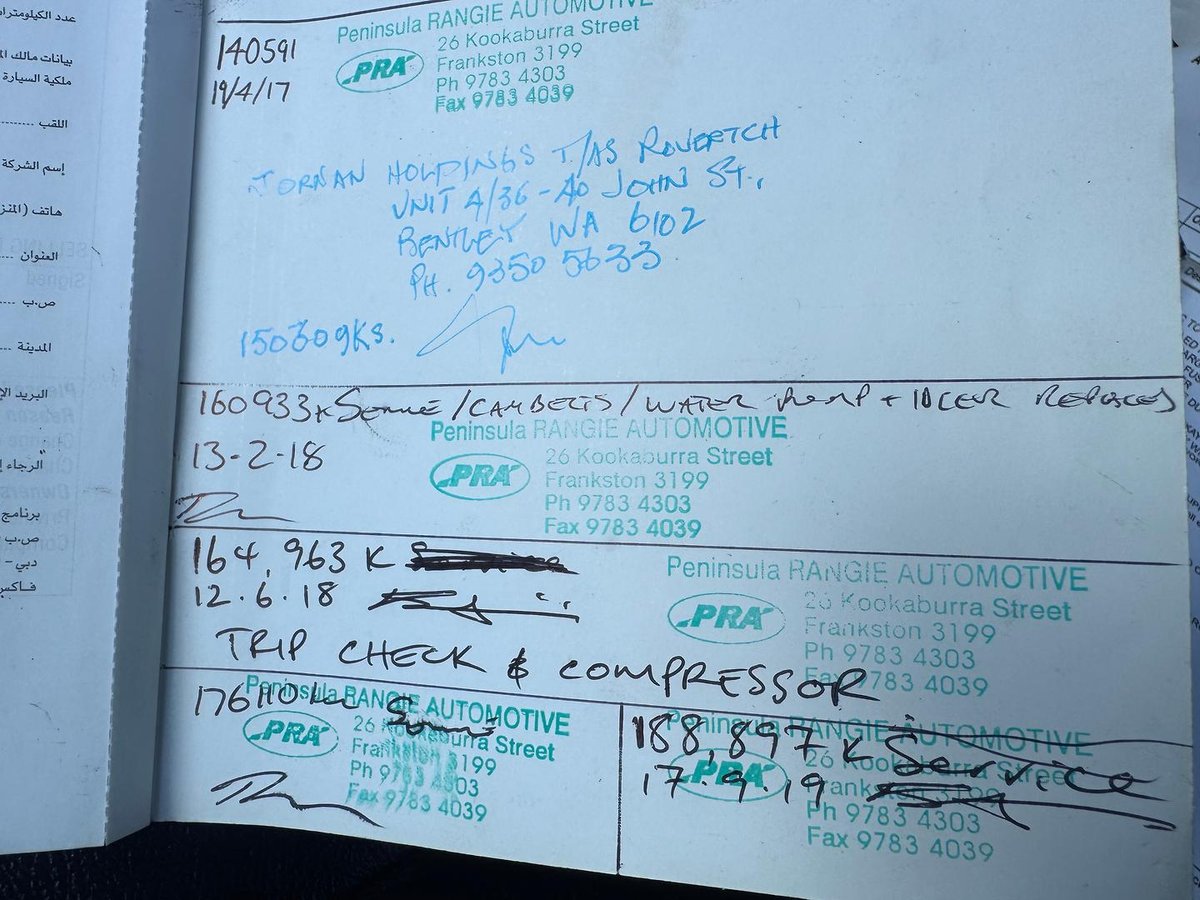 عدد الكيلومترا
بيانات مالك ال
ملكية السيارة
اللقب
إسم الشركة
هاتف (المنز
العنوان
ص.ب
المدينة
البريد الإ
الرجاء إ
برنامج
ص.ب
دبي-
فاكس
140591
19/4/17
Peninsula RANGIE AUTOMOTIVE
PRA
26 Kookaburra Street
Frankston 3199
Ph 9783 4303
Fax 9783 4039
JORNAN HOLDINGS T/AS ROVERTCH
UNIT 4/36-40 JOHN ST.,
BENTLEY WA 6102
PH. 9350 5633
150309KS.
160933K SERVICE/CAMBELTS/WATER PUMP + IDLER REPLACED
13-2-18
Peninsula RANGIE AUTOMOTIVE
PRA
26 Kookaburra Street
Frankston 3199
Ph 9783 4303
Fax 9783 4039
164,963 K
12.6.18
TRIP CHECK & COMPRESSOR
Peninsula RANGIE AUTOMOTIVE
PRA
26 Kookaburra Street
Frankston 3199
Ph 9783
Fax 9783 4039
176110 km Service
Peninsula RANGIE AUTOMOTIVE
PRA
26 Kookaburra Street
Frankston 3199
Ph 9783 4303
Fax 9783 4039
188,897 K Service
17.9.19
Peninsula RANGIE AUTOMOTIVE
PRA
26 Kookaburra Street
Frankston 3199
Ph 9783 4303
Fax 9783 4039